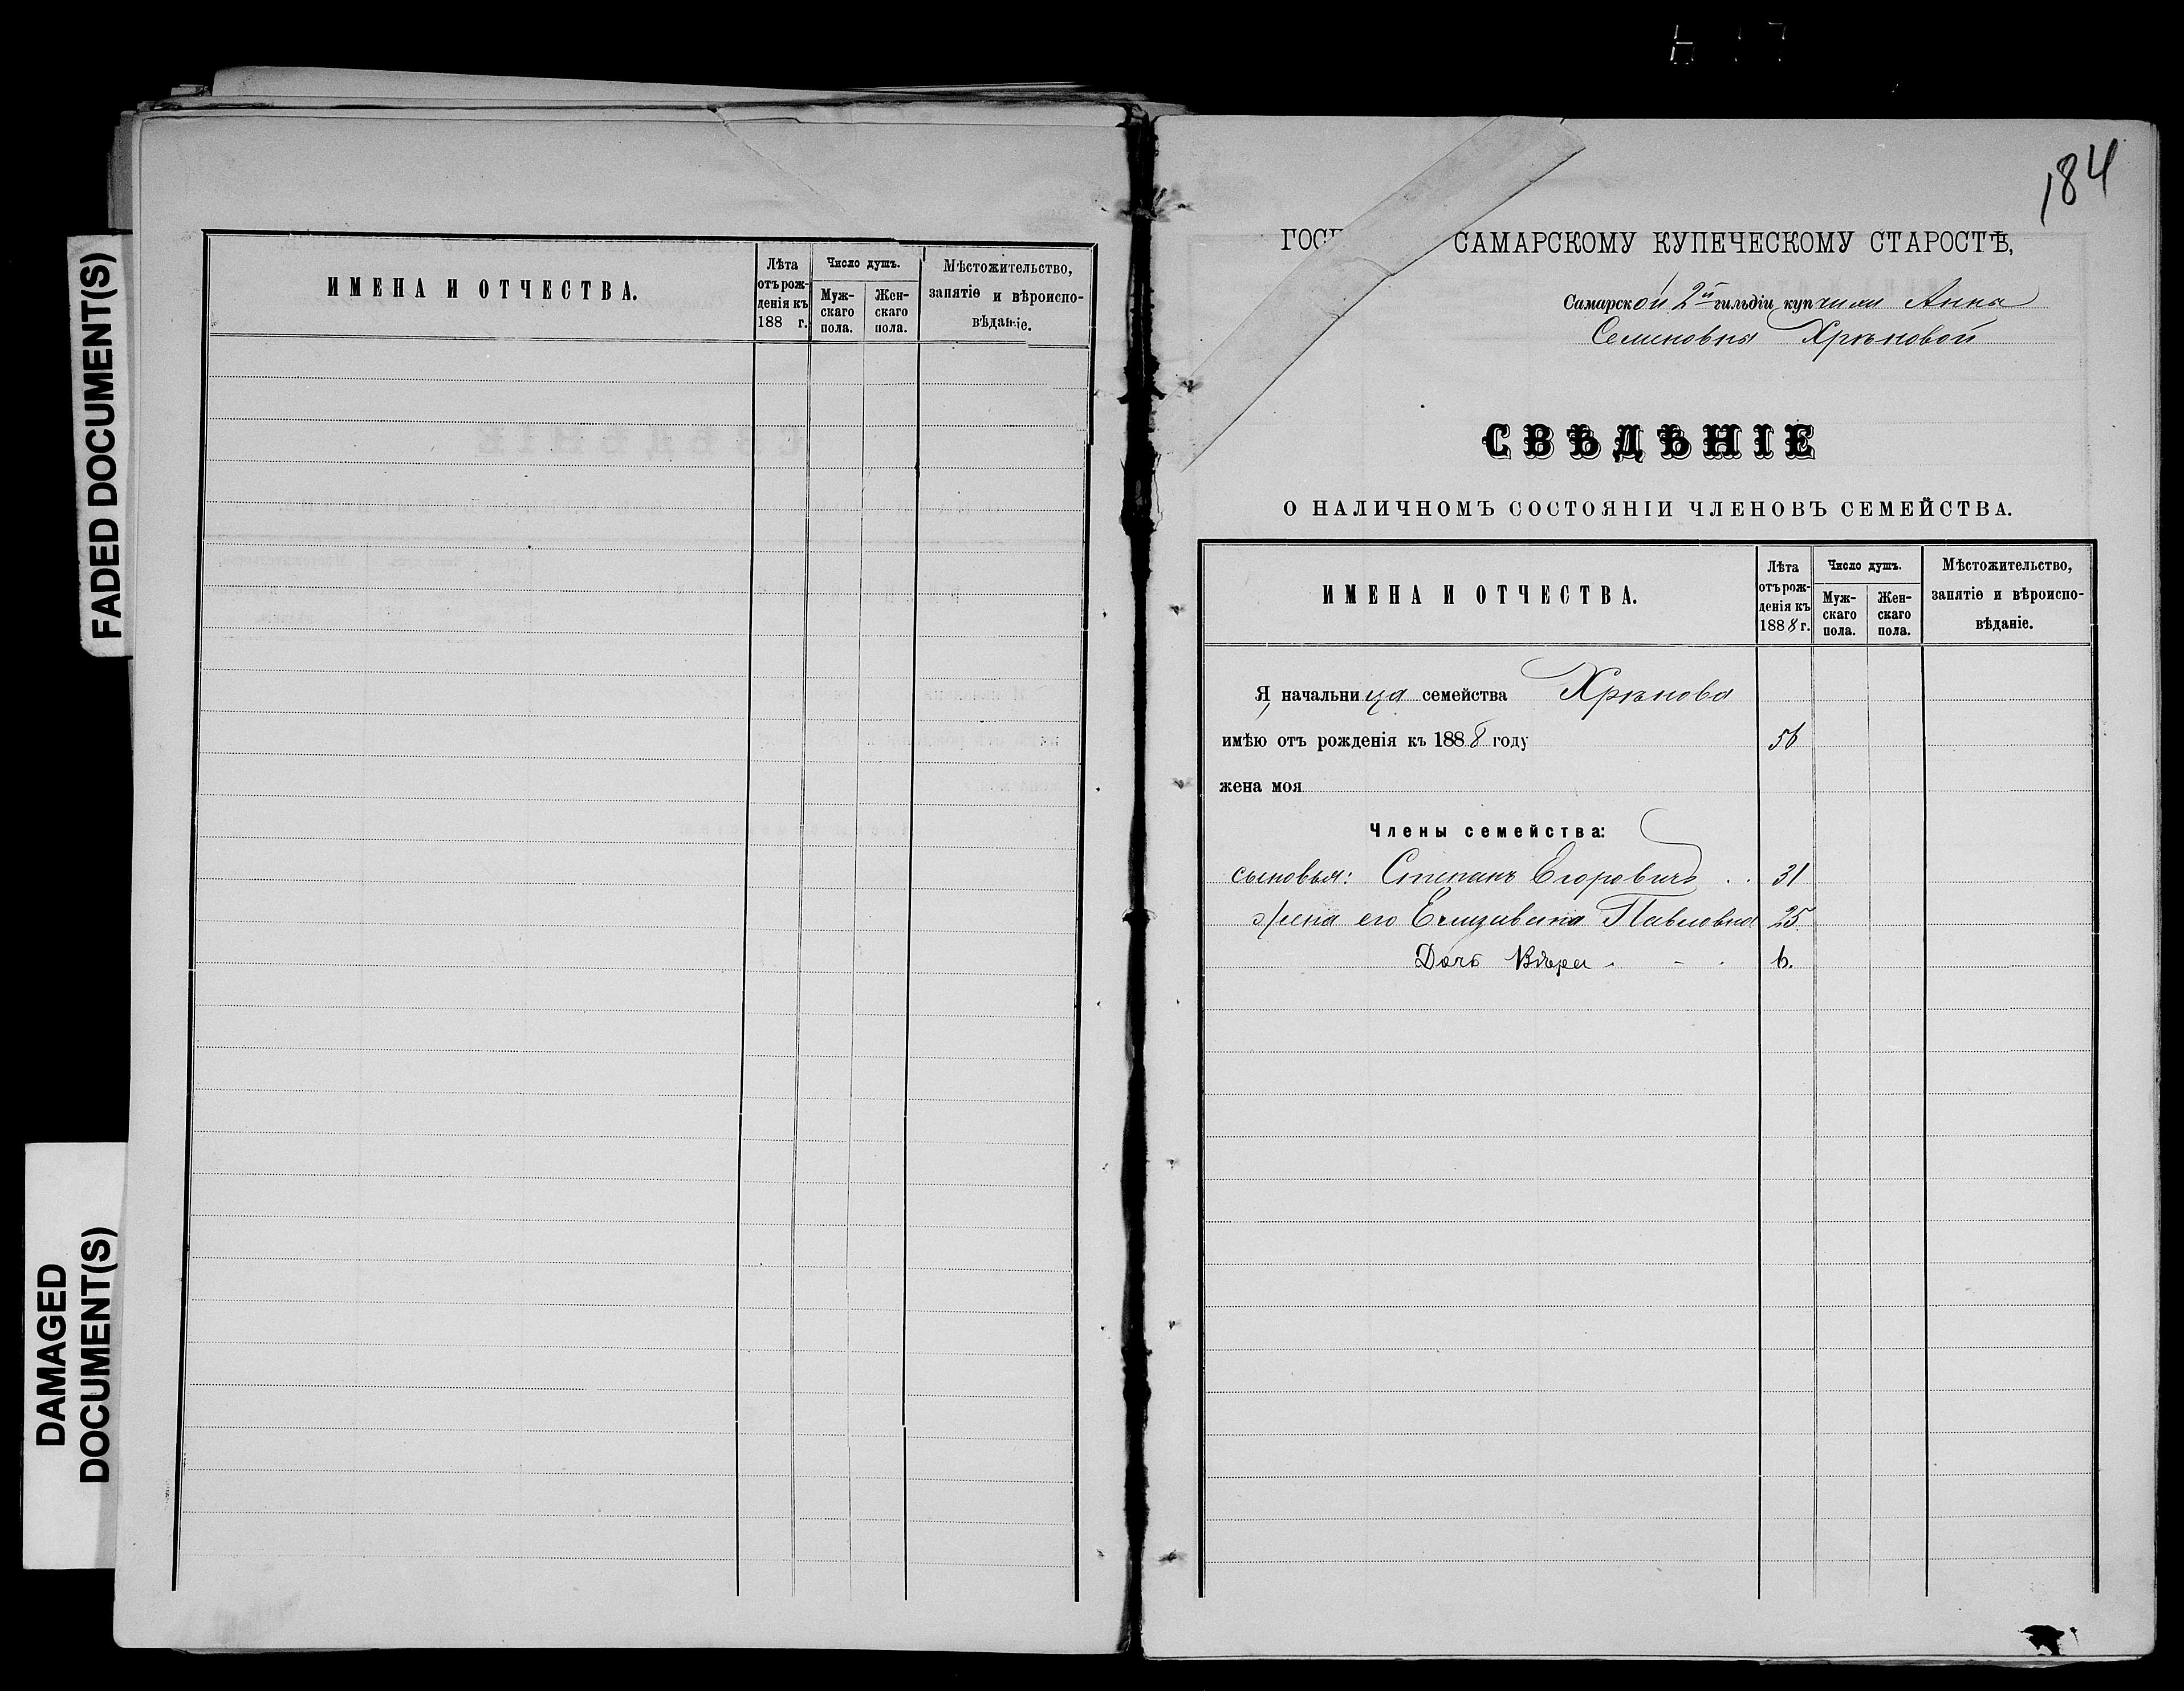 FADED DOCUMENT(S)
DAMAGED
DOCUMENT(S)
ИМЕНА И ОТЧЕСТВА.
Лѣта
отъ рож-
денія къ
188 г.
Число душъ.
Муж-
скаго
пола.
Жен-
скаго
пола.
Мѣстожительство,
занятіе и вѣроиспо-
вѣданіе.
184
ГОСП САМАРСКОМУ КУПЕЧЕСКОМУ СТАРОСТѢ,
Самарской 2й гильдіи купчихи Анна
Семеновны Хрѣновой
СВѢДѢНІЕ
О НАЛИЧНОМЪ СОСТОЯНІИ ЧЛЕНОВЪ СЕМЕЙСТВА.
ИМЕНА И ОТЧЕСТВА.
Лѣта
отъ рож-
денія къ
1888 г.
Число душъ.
Муж-
скаго
пола.
Жен-
скаго
пола.
Мѣстожительство,
занятіе и вѣроиспо-
вѣданіе.
Я начальница семейства Хрѣнова
имѣю отъ рожденія къ 1888 году 56
жена моя
Члены семейства:
сыновья: Степанъ Егоровичъ . . 31
жена его Елизавета Павловна 25
Дочь Вѣра . - . 6.